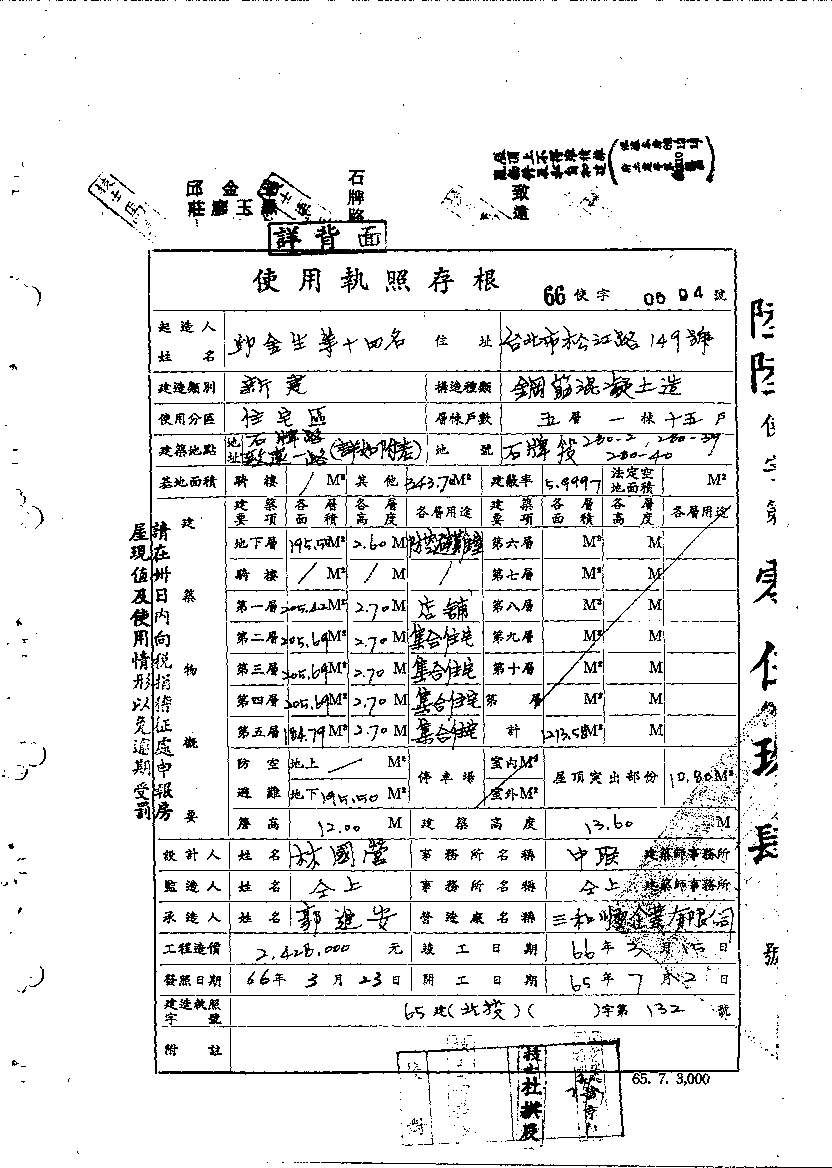 石牌路
邱金
莊廖玉
致遠
詳背面
使用執照存根
66 使字 0694 號
起造人姓名 邱金生等十四名 住址 台北市松江路149號
建造類別 新建 構造種類 鋼筋混凝土造
使用分區 住宅區 層棟戶數 五層一棟十五戶
建築地點 地址 石牌路致遠一路(詳如附表) 地號 石牌段 280-2, 280-39 280-40
基地面積 騎樓 / M² 其他 343.70M² 建蔽率 5.9997 法定空地面積 M²
建築要項 各層面積 各層高度 各層用途 建築要項 各層面積 各層高度 各層用途
建築物概要
地下層 195.50M² 2.60M 防空避難室 第六層 M² M
騎樓 / M² / M / 第七層 M² M
第一層 205.42M² 2.70M 店舖 第八層 M² M
第二層 205.69M² 2.70M 集合住宅 第九層 M² M
第三層 205.69M² 2.70M 集合住宅 第十層 M² M
第四層 205.69M² 2.70M 集合住宅 第 層 M² M
第五層 184.79M² 2.70M 集合住宅 計 1213.58M² M
防空避難 地上 / M² 停車場 室內M² 屋頂突出部份 10.80M²
地下 195.50M² 室外M²
簷高 12.00 M 建築高度 13.60 M
設計人 姓名 林國瑩 事務所名稱 中聯 建築師事務所
監造人 姓名 仝上 事務所名稱 仝上 建築師事務所
承造人 姓名 郭進安 營造廠名稱 三和 企業有限公司
工程造價 2,428,000 元 竣工日期 66年3月15日
發照日期 66年3月23日 開工日期 65年7月2日
建造執照字號 65建(北投)( )字第132號
附註
65. 7. 3,000
請在卅日內向稅捐稽征處申報房
屋現值及使用情形以免逾期受罰
陸陸使字第零仟 玖肆號